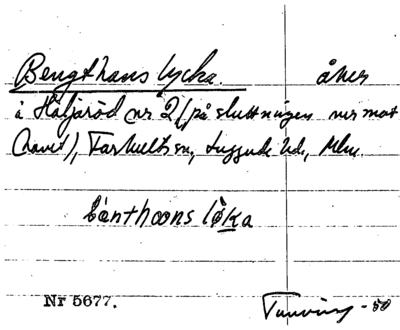 Bengthans lycka. åker
i Häljaröd nr 2 (på sluttningen ner mot
havet), Farhults sn, Luggude hd, Mlm.
bánthans lỳka
Nr 5677.
-50